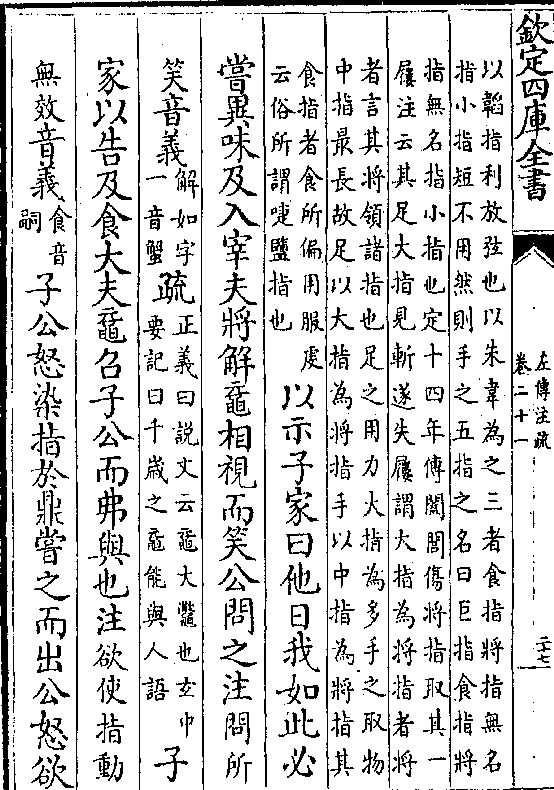 欽定四庫全書
左傳注疏
卷二十一
二十七
以韜指利放弦也以朱韋為之三者食指將指無名
指小指短不用然則手之五指之名曰巨指食指將
指無名指小指也定十四年傳闔閭傷將指取其一
屨注云其足大指見斬遂失屨謂大指為將指者將
者言其將領諸指也足之用力大指為多手之取物
中指最長故足以大指為將指手以中指為將指其
食指者食所偏用服虔
云俗所謂啑鹽指也
以示子家曰他日我如此必
嘗異味及入宰夫將解黿相視而笑公問之注問所
笑音義
解如字
一音蟹
疏
正義曰説文云黿大鼈也玄中
要記曰千歳之黿能與人語
子
家以告及食大夫黿召子公而弗與也注欲使指動
無效音義
食音
嗣
子公怒染指於鼎嘗之而出公怒欲